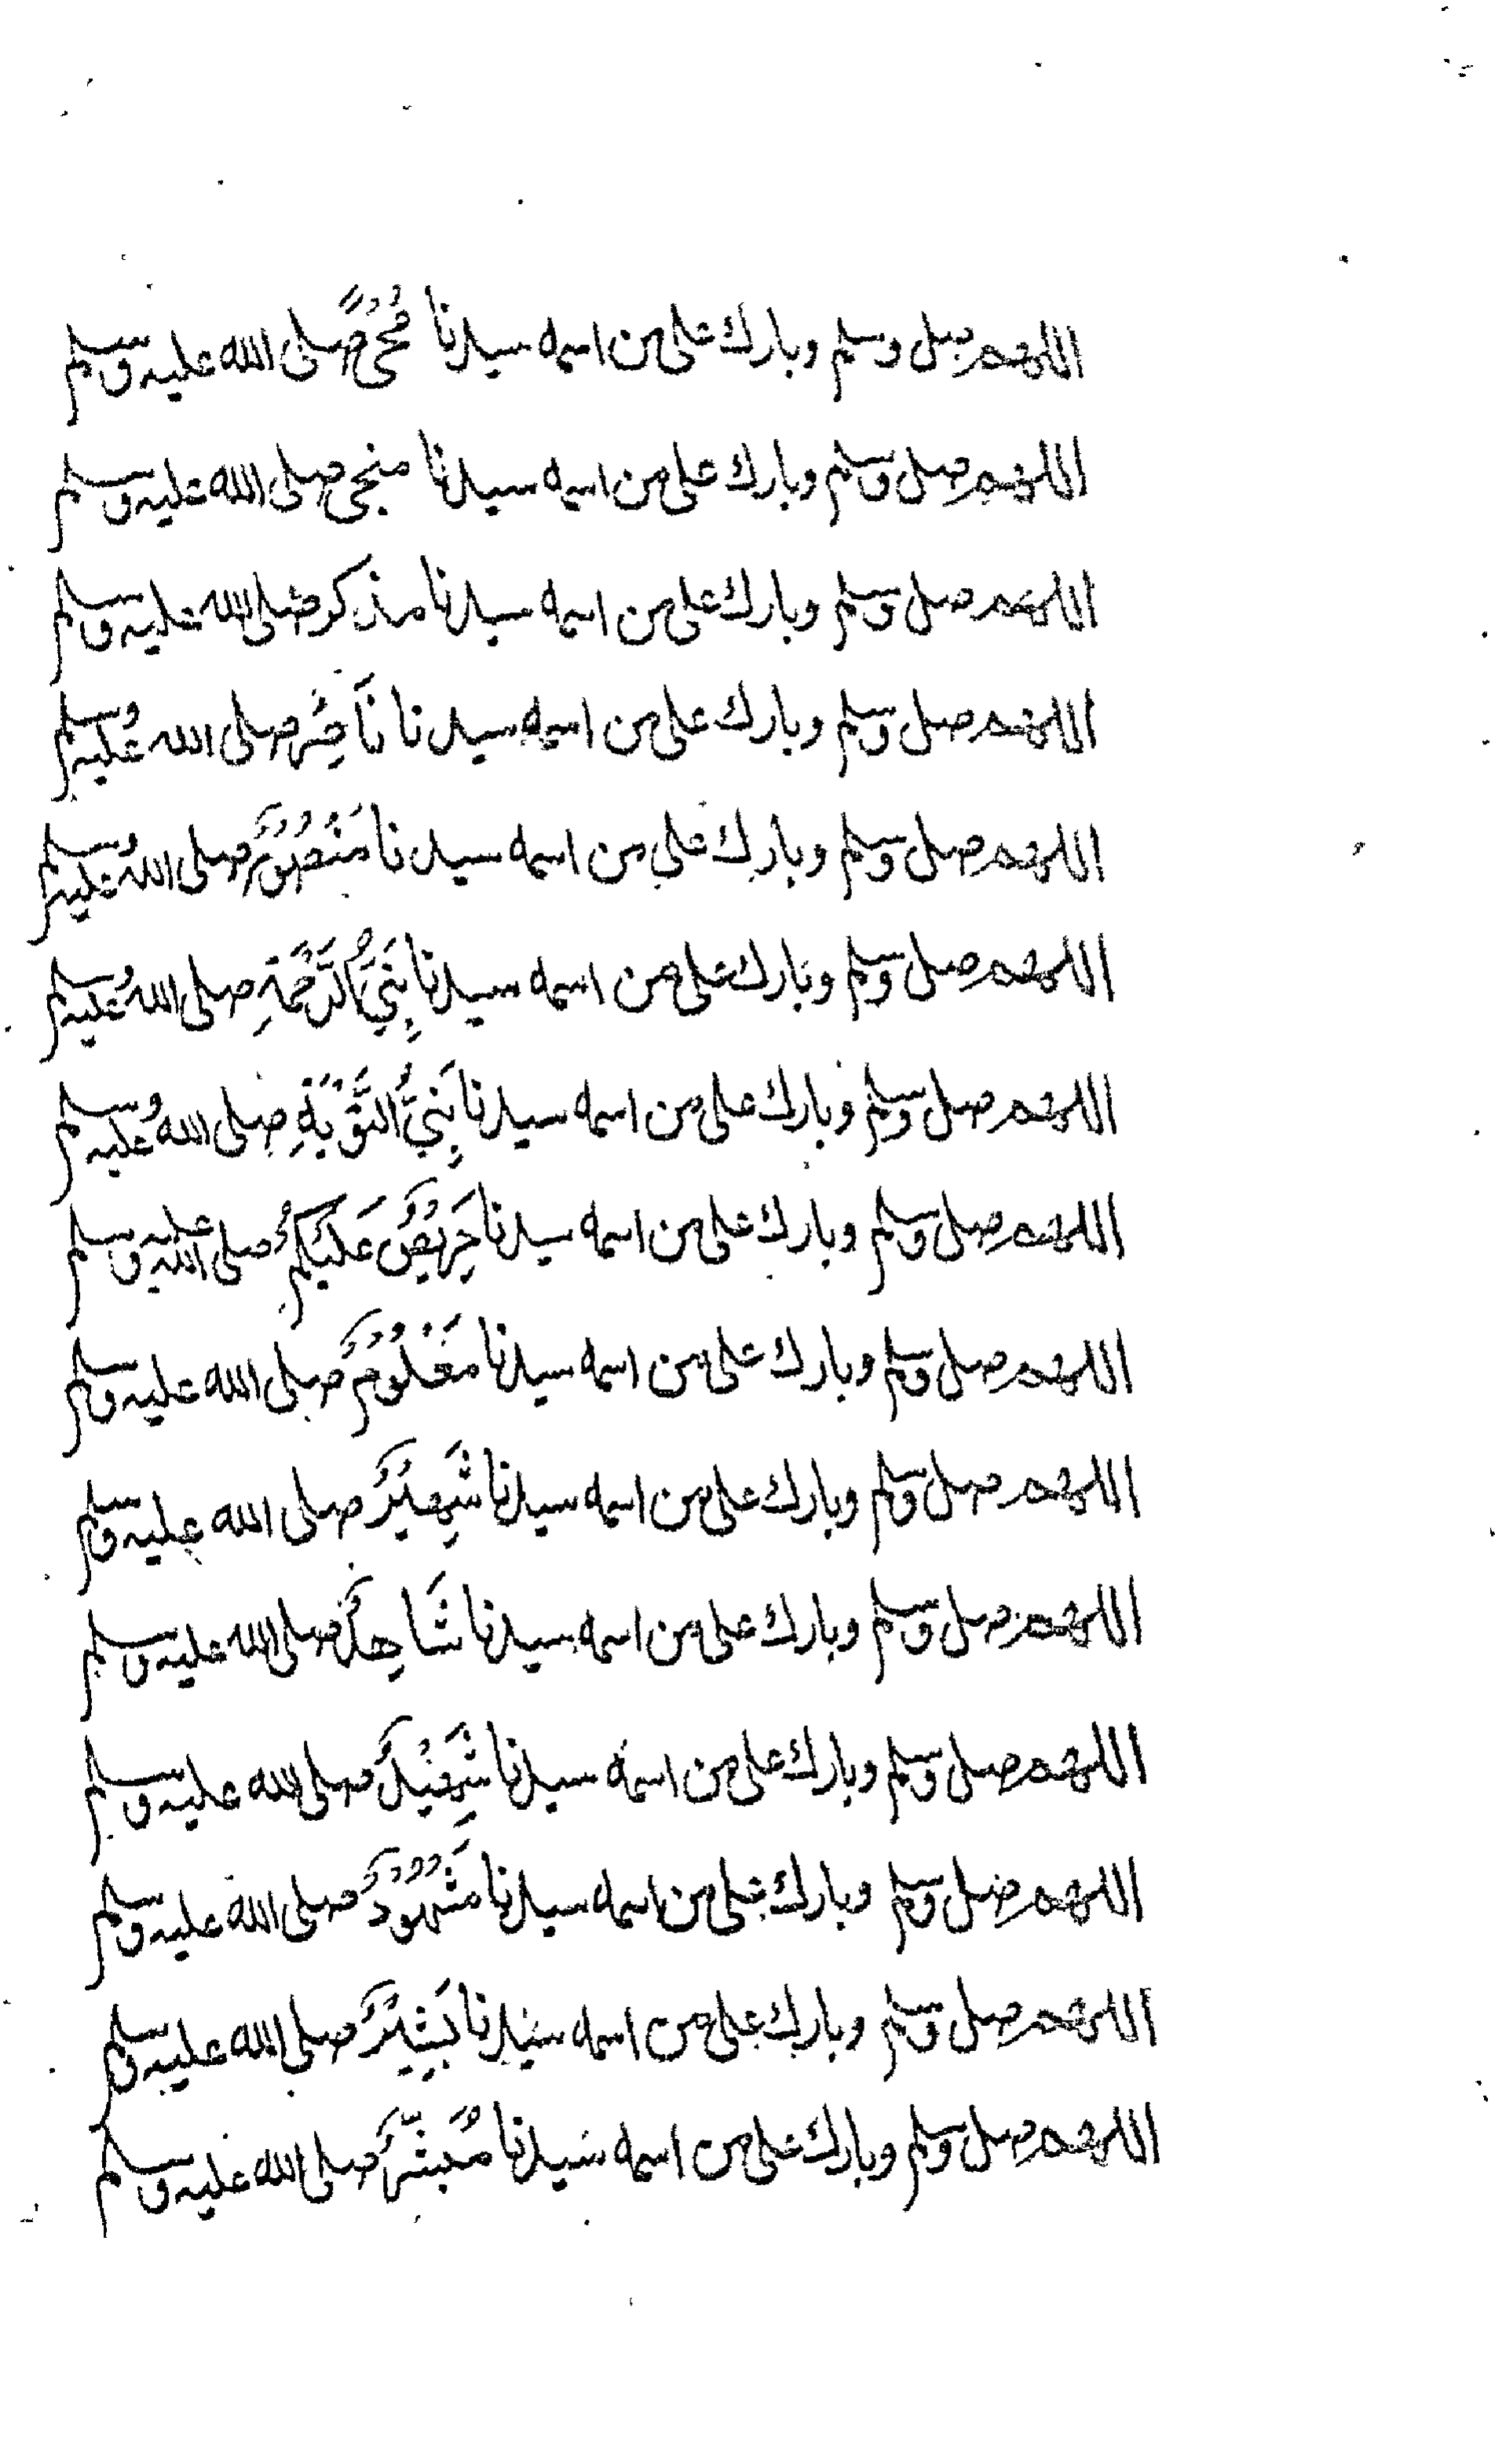 اللهم صل وسلم وبارك على من اسمه سيدنا مُحْيٍ صلى الله عليه وسلم
اللهم صل وسلم وبارك على من اسمه سيدنا منجى صلى الله عليه وسلم
اللهم صل وسلم وبارك على من اسمه سيدنا مذكر صلى الله عليه وسلم
اللهم صل وسلم وبارك على من اسمه سيدنا نَاصِرٌ صلى الله عليه وسلم
اللهم صل وسلم وبارك على من اسمه سيدنا مَنْصُوْرٌ صلى الله عليه وسلم
اللهم صل وسلم وبارك على من اسمه سيدنا نَبِيُّ الرَّحْمَةِ صلى الله عليه وسلم
اللهم صل وسلم وبارك على من اسمه سيدنا نَبِيُّ التَّوْبَةِ صلى الله عليه وسلم
اللهم صل وسلم وبارك على من اسمه سيدنا حَرِيْصٌ عَلَيْكُمْ صلى الله عليه وسلم
اللهم صل وسلم وبارك على من اسمه سيدنا مَعْلُوْمٌ صلى الله عليه وسلم
اللهم صل وسلم وبارك على من اسمه سيدنا شَهِيْرٌ صلى الله عليه وسلم
اللهم صل وسلم وبارك على من اسمه سيدنا شَاهِدٌ صلى الله عليه وسلم
اللهم صل وسلم وبارك على من اسمه سيدنا شَهِيْدٌ صلى الله عليه وسلم
اللهم صل وسلم وبارك على من اسمه سيدنا مَشْهُوْدٌ صلى الله عليه وسلم
اللهم صل وسلم وبارك على من اسمه سيدنا بَشِيْرٌ صلى الله عليه وسلم
اللهم صل وسلم وبارك على من اسمه سيدنا مُبَشِّرٌ صلى الله عليه وسلم